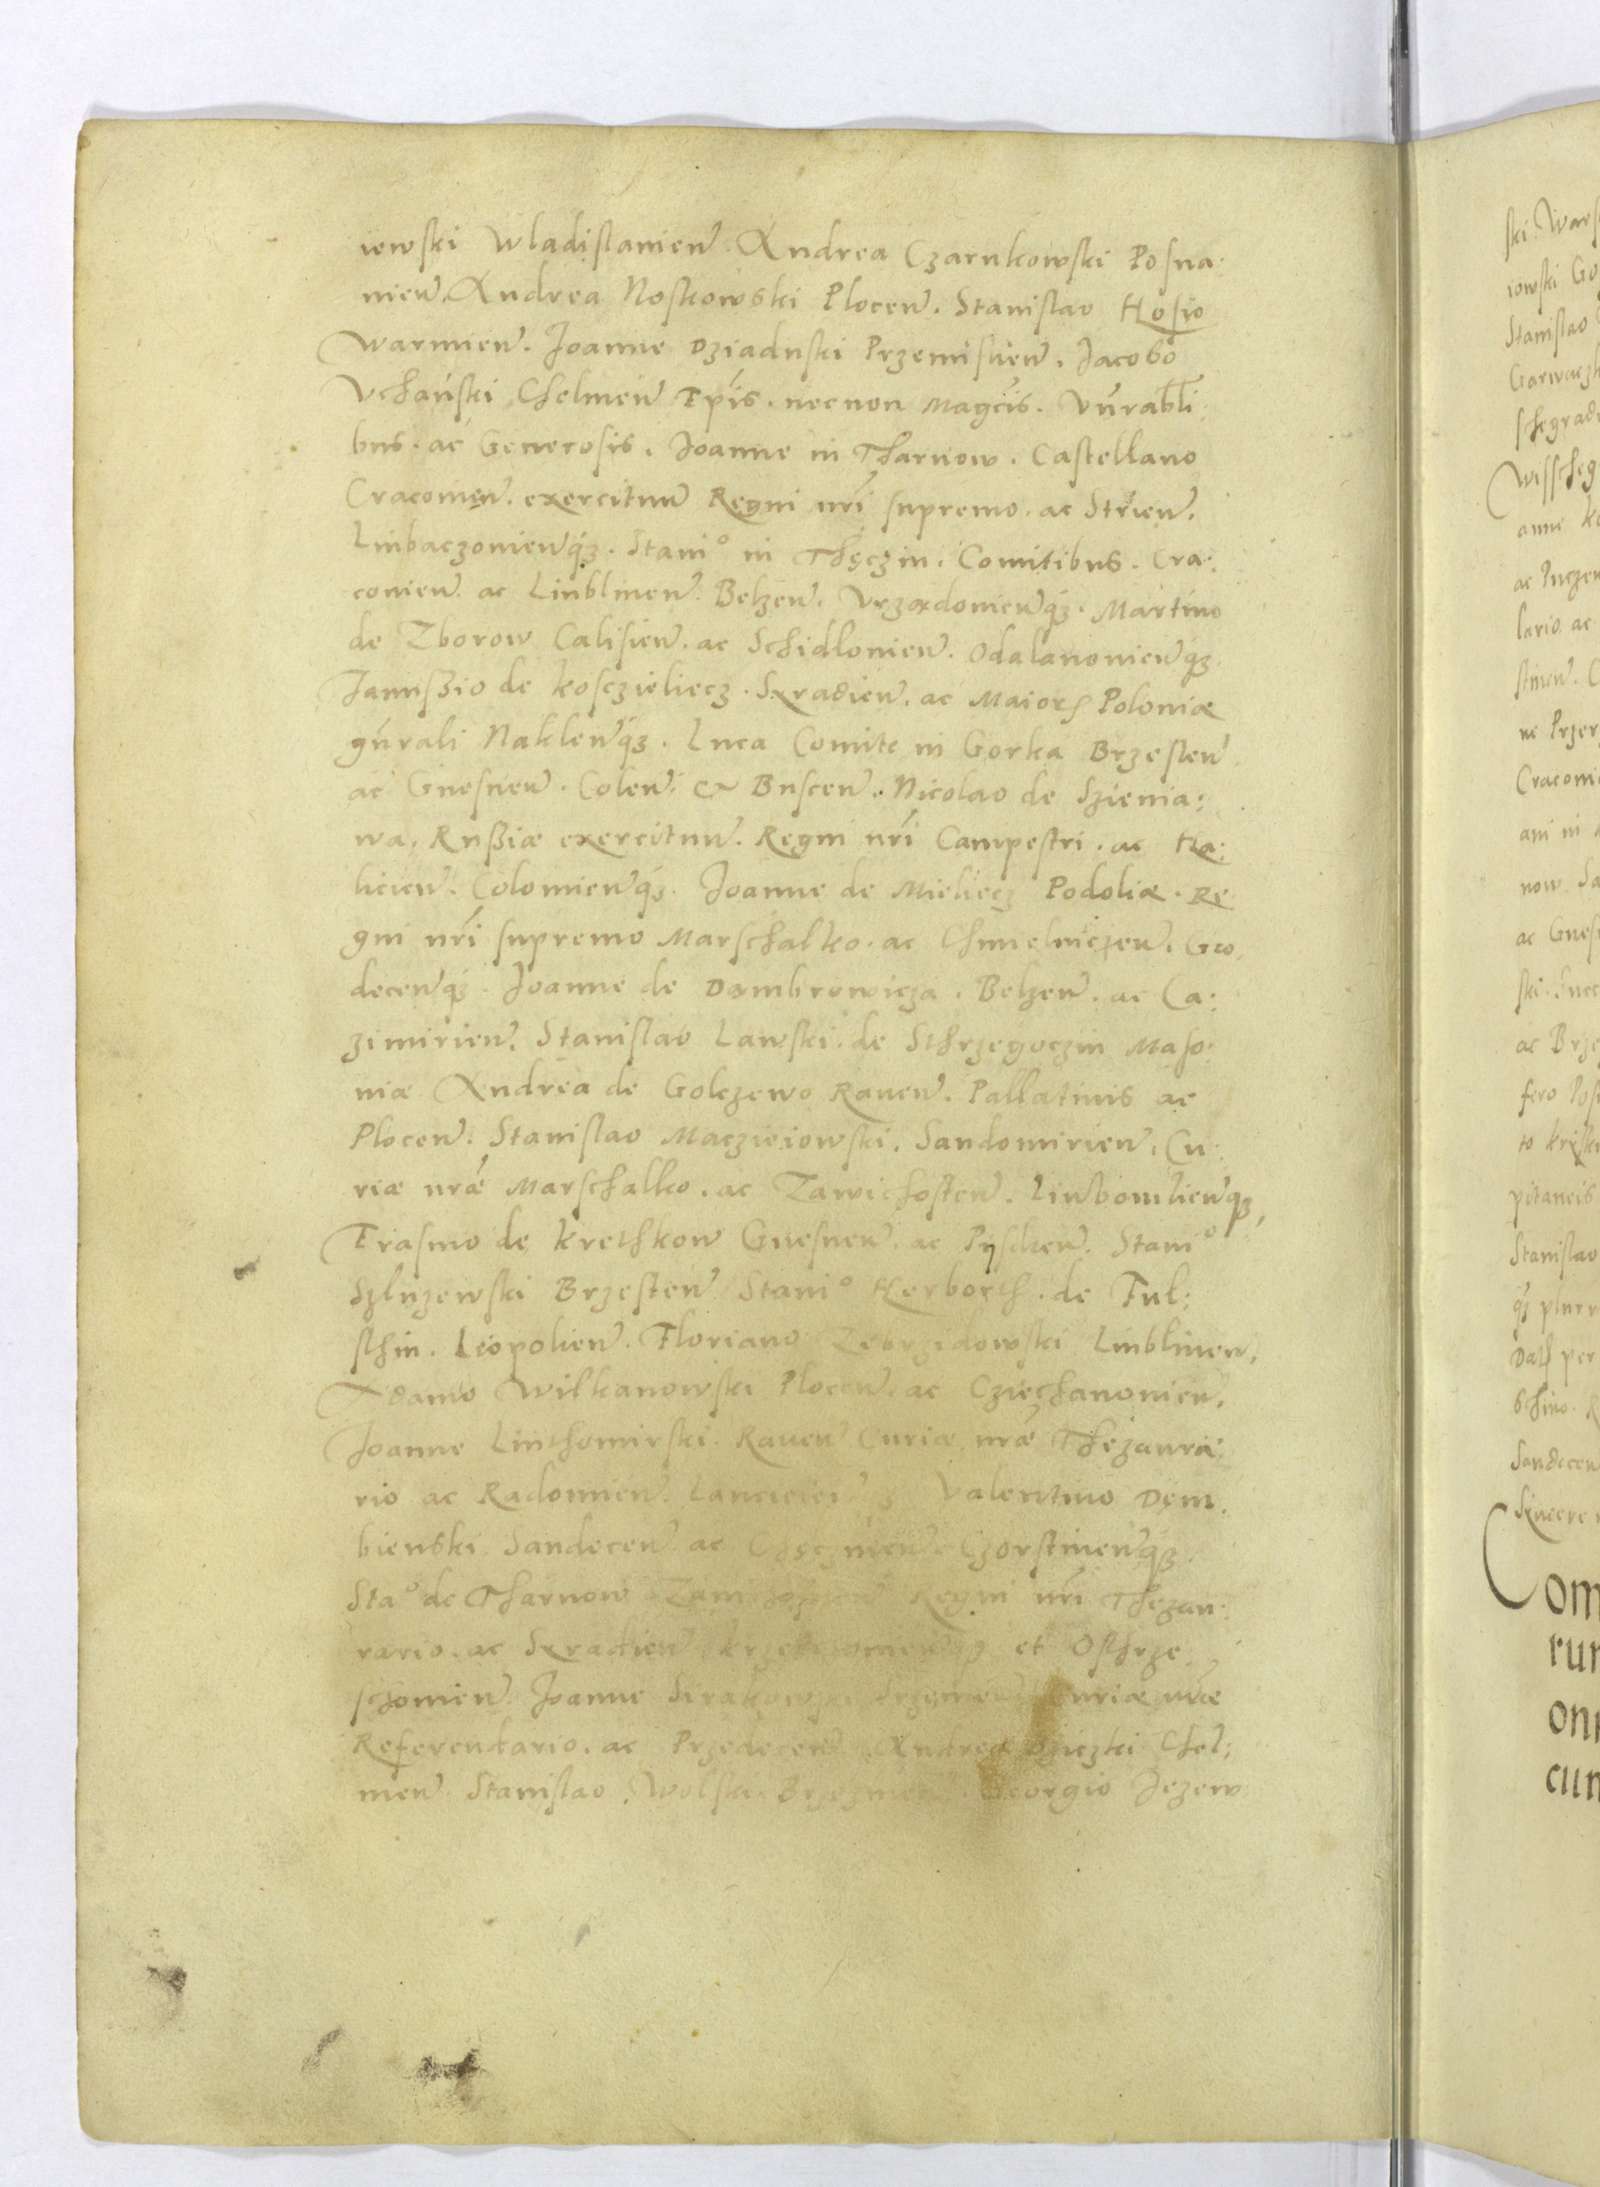 iewski Wladislauien̄. Andrea Czarnkowski Posna:
nien̄. Andrea Noskowski Plocen̄. Stanislao Hosio
Warmien̄. Joanne Dziaduski Przemislien̄. Jacobo
Uchański Chelmen̄ Ep̄is. necnon Maḡcis. Vn̄rabl̄i
bus. ac Generosis. Joanne in Tharnow. Castellano
Cracouien̄. exercituū Regni n̄ri supremo. ac Strien̄.
Liubaczouien̄qꝫ. Stani° in Thęczin. Comitibus. Cra:
couien̄. ac Liublinen̄. Belzen̄. Vrzędouien̄qꝫ. Martino
de Zborow Calisien̄. ac Schidlouien̄. Odalanouien̄qꝫ
Janussio de Kosczieliecz. Syradien̄. ac Maioris Poloniæ
gn̄rali Naklen̄qꝫ. Luca Comite in Gorka Brzesten̄
ac Gnesnen̄. Colen̄. & Buscen̄. Nicolao de Szienia:
wa, Russiæ exercituū. Regni n̄ri Campestri. ac Ha:
licien̄. Colomien̄qꝫ. Joanne de Mieliecz Podoliæ. Re
gni n̄ri supremo Marschalko. ac Chmelniczen̄. Gro
decen̄qꝫ. Joanne de Dambrowicza. Belzen̄. ac Ca:
zimirien̄. Stanislao Lawski. de Sthrzegoczin Maso:
uiæ Andrea de Golczewo Rauen̄. Pallatinis ac
Plocen̄. Stanislao Macziеiowski. Sandomirien̄. Cu:
riæ n̄ræ Marschalko. ac Zawichosten̄. Liubomlien̄qꝫ,
Erasmo de Krethkow Gnesnen̄. ac Pysdren̄. Stani°
Szluzewski Brzesten̄ Stani° Herborth. de Ful:
sthin. Leopolien̄. Floriano Zebrzidowski Liublinen̄.
Adamo Wilkanowski Plocen̄. ac Cziechanouien̄.
Joanne Liuthomirski. Rauen̄ Curiæ n̄ræ Thezaura:
rio ac Radomien̄. Valentino Dem.
bienski Sandecen̄ ac Chęczinen̄. Czorstinen̄qꝫ
Sta° de Tharnow Regni n̄ri Thezau:
rario. ac Syradien̄ et Osthrze
schouien̄. Joanne Sirakowski Curiæ n̄ræ
Referendario. ac Przedecen̄. Andrea Dziczki Chel:
men̄ Stanislao Wolski Georgio Jezew
ski. Wars
iowski Go
Stanislao
Garwaczk
Wisscheg
anne
ac Pnczen
lario ac
ne Przer
now Sa
ac Gnes
ac Brze
fero Pos
pitaneis
Stanislao
Sandecen
Com
rum
on
cun